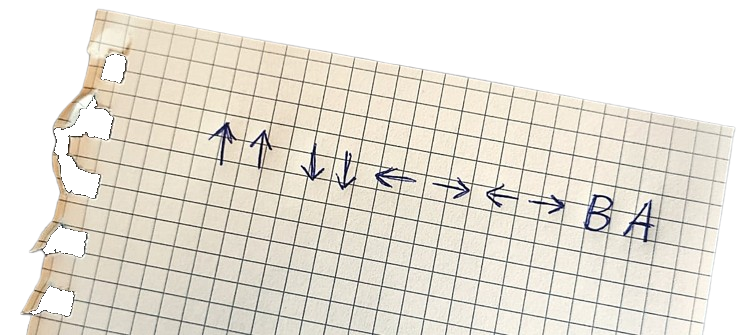 ↑ ↑ ↓ ↓ ← → ← → B A